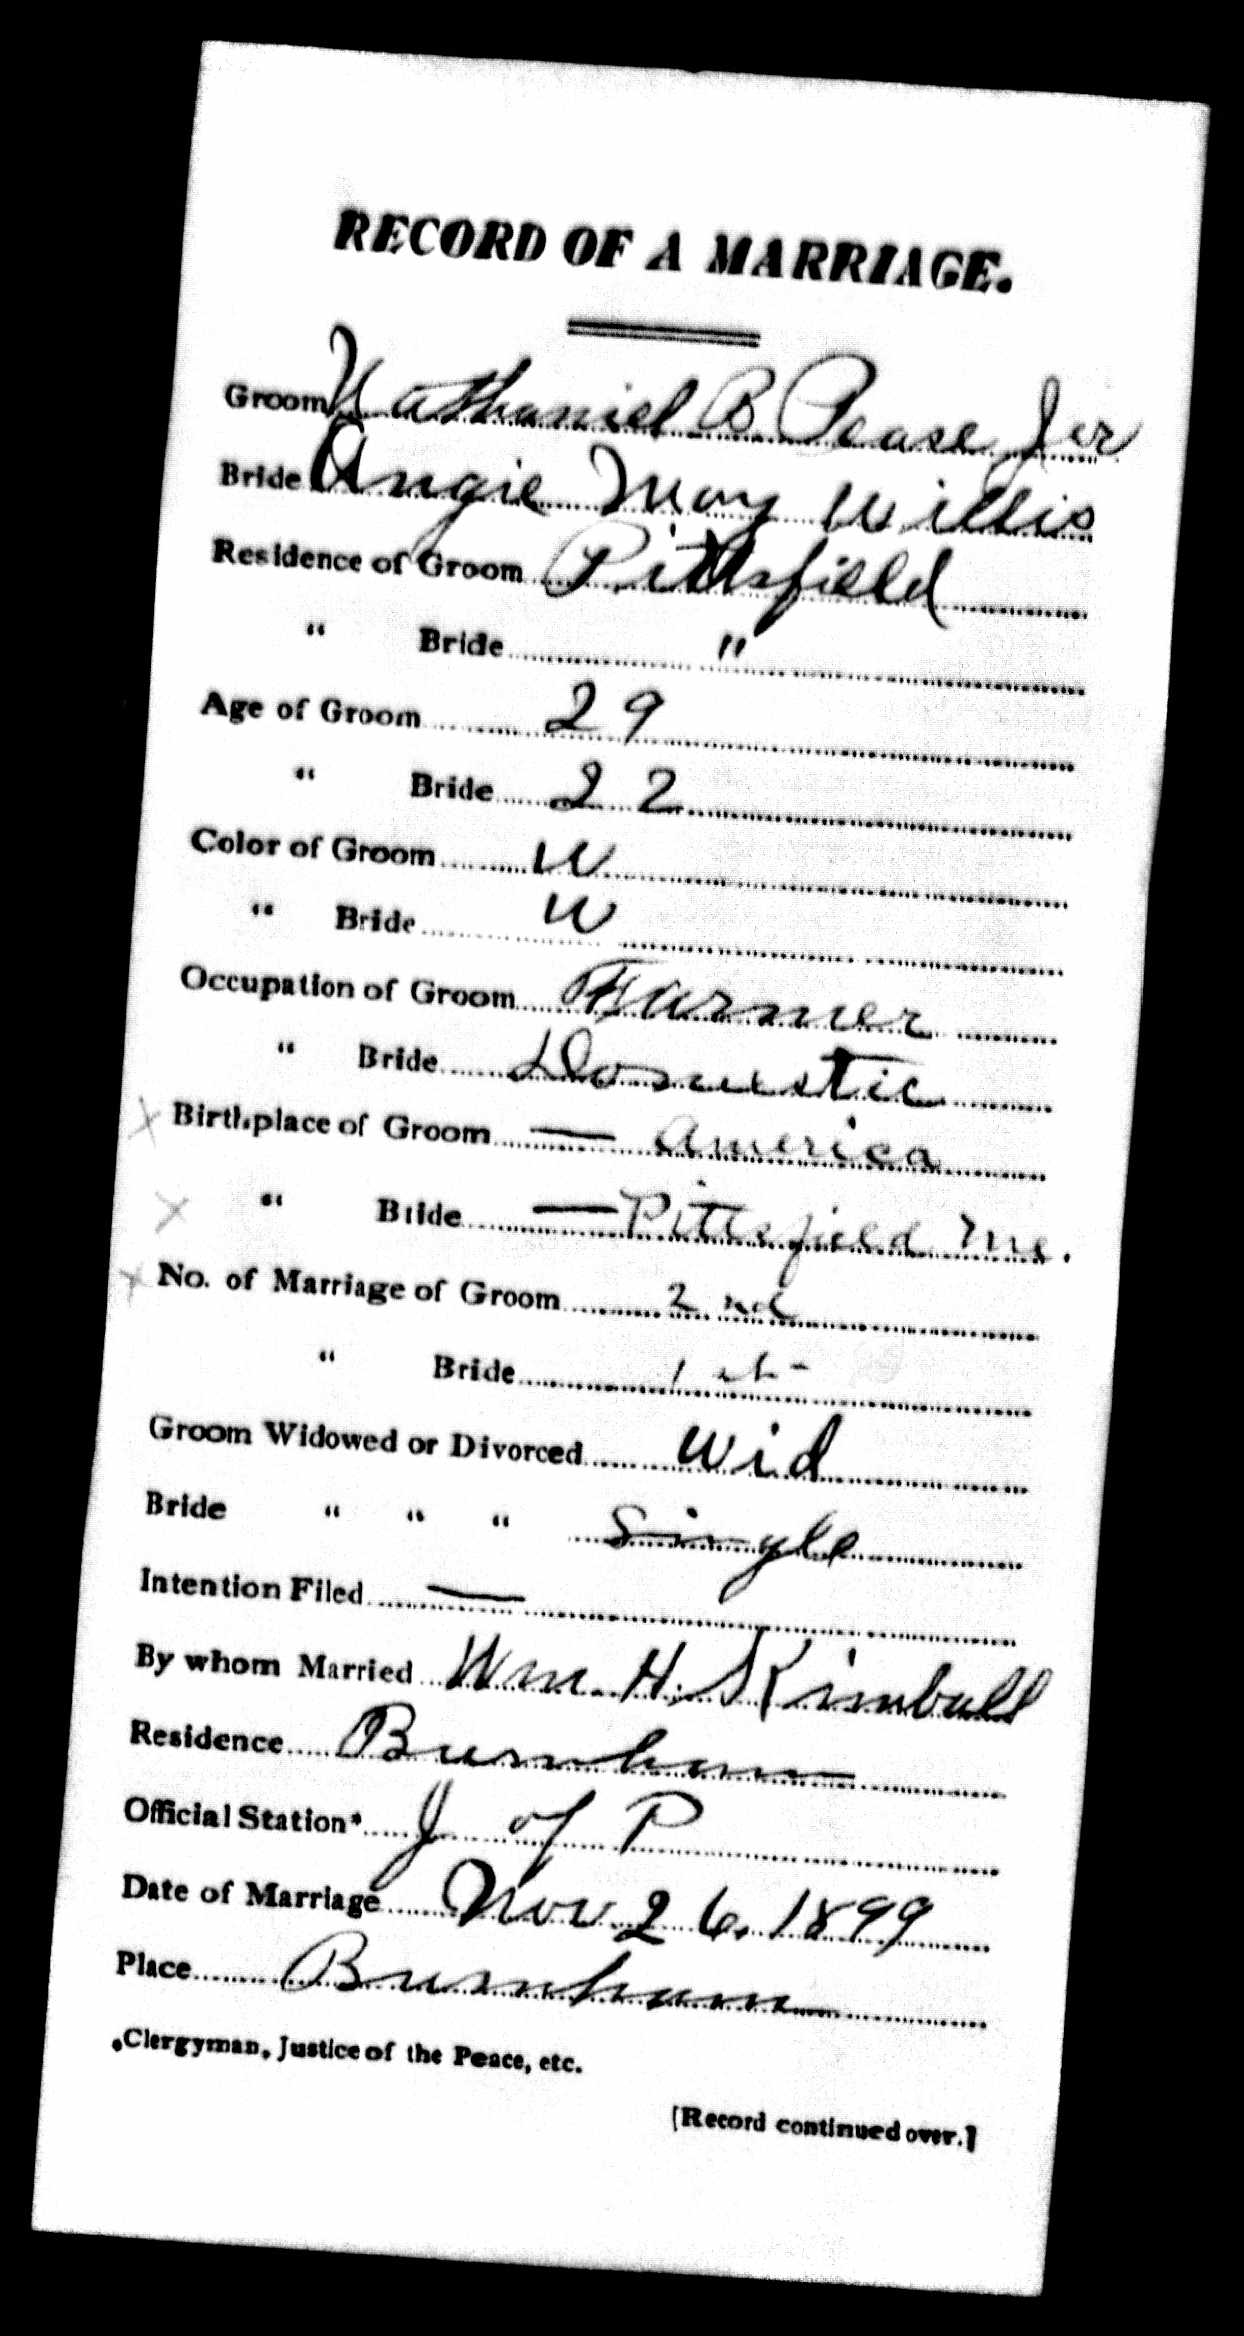 RECORD OF A MARRIAGE.
Groom Nathaniel B. Pease Jur
Bride Angie May Willis
Residence of Groom Pittsfield
" Bride "
Age of Groom 29
" Bride 22
Color of Groom W
" Bride W
Occupation of Groom Farmer
" Bride Domestic
x Birthplace of Groom — America
x " Bride — Pittsfield Me.
x No. of Marriage of Groom 2nd
" Bride 1st
Groom Widowed or Divorced Wid
Bride " " " Single
Intention Filed —
By whom Married Wm. H. Kimball
Residence Burnham
Official Station* J of P
Date of Marriage Nov 26, 1899
Place Burnham
*Clergyman, Justice of the Peace, etc.
[Record continued over.]